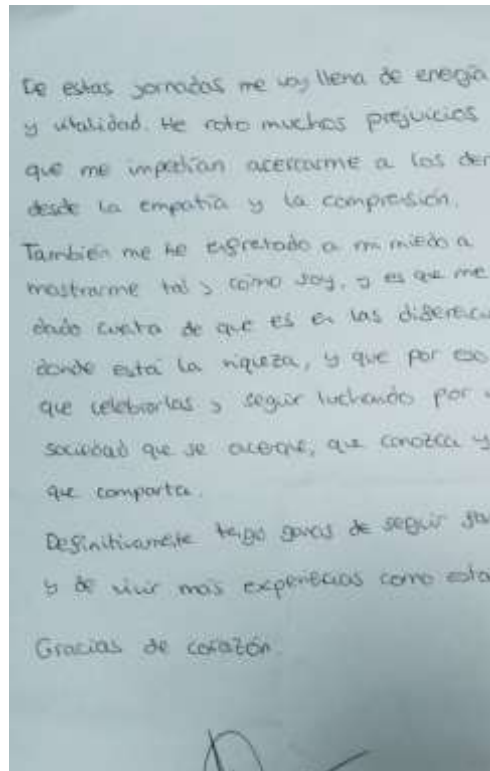 De estas jornadas me voy llena de energía
y vitalidad. He roto muchos prejuicios
que me impedían acercarme a los
desde la empatía y la comprensión.
También me he enfretado a mi miedo a
mostrarme tal y como soy, y es que me
dado cuenta de que es en las
donde está la riqueza, y que por eso
que celebrarlas y seguir luchando por
sociedad que se acerque, que conozca y
que comparta.
Definitivamente tengo ganas de seguir
y de vivir más experiencias como
Gracias de corazón.